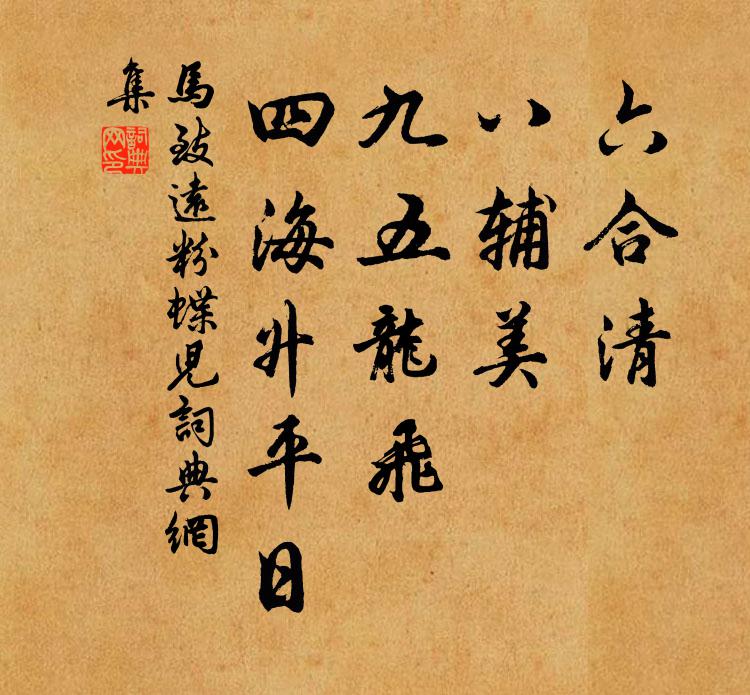 六合清
八辅美
九五龍飛
四海升平日
馬致遠粉蝶児詞典網
集
詞典网印